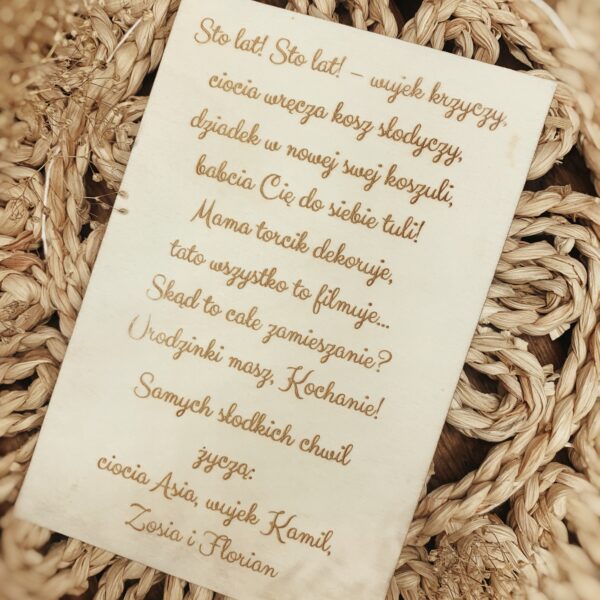 Sto lat! Sto lat! – wujek krzyczy,
ciocia wręcza kosz słodyczy,
dziadek w nowej swej koszuli,
babcia Cię do siebie tuli!
Mama torcik dekoruje,
tato wszystko to filmuje...
Skąd to całe zamieszanie?
Urodzinki masz, Kochanie!
Samych słodkich chwil
życzą:
ciocia Asia, wujek Kamil,
Zosia i Florian